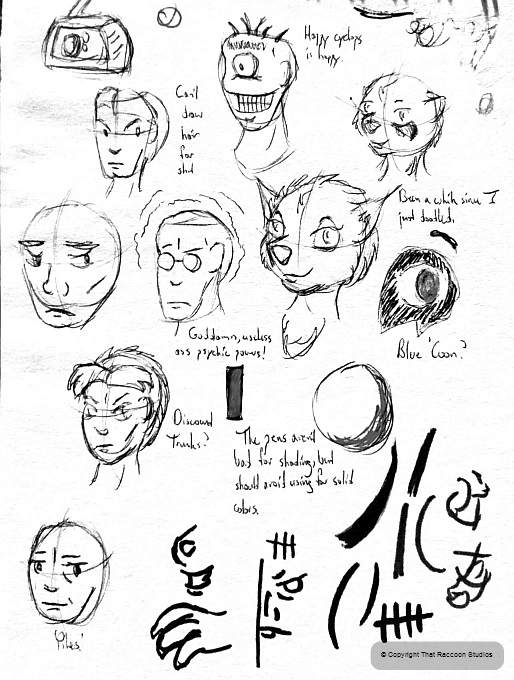 Happy cyclops
is happy.
Can't
draw
hair
for
shit
Been a while since I
just doodled.
Goddamn, useless
ass psychic powers!
Blue 'Coon?
Discount
Trunks?
The pens aren't
bad for shading, but
should avoid using for solid
colors.
'Piles.'
© Copyright That Raccoon Studios